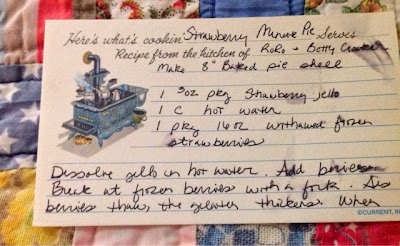 Here's what's cookin' Strawberry Minute Pie Serves
Recipe from the kitchen of RoRo + Betty Crocker
Make 8" Baked pie shell
1 3oz pkg Strawberry jello
1 C hot water
1 pkg 16oz unthawed frozen
strawberries
Dissolve jello in hot water. Add berries.
Break at frozen berries with a fork. As
berries thaw, the gelatin thickens. When
©CURRENT, IN